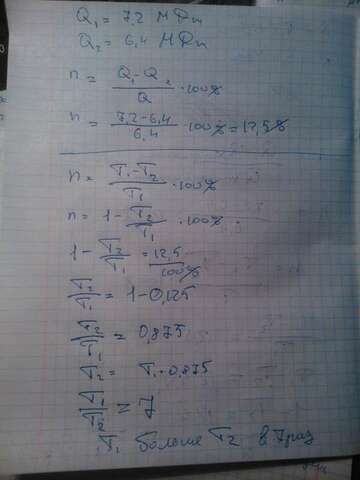 Q₁ = 7,2 МДж
Q₂ = 6,4 МДж
n = (Q₁ - Q₂)/Q · 100%
n = (7,2 - 6,4)/6,4 · 100% = 12,5%
n = (T₁ - T₂)/T₁ · 100%
n = 1 - T₂/T₁ · 100%
1 - T₂/T₁ = 12,5/100%
T₂/T₁ = 1 - 0,125
T₂/T₁ = 0,875
T₂ = T₁ · 0,875
T₁/T₂ = 7
T₁ больше T₂ в 7 раз